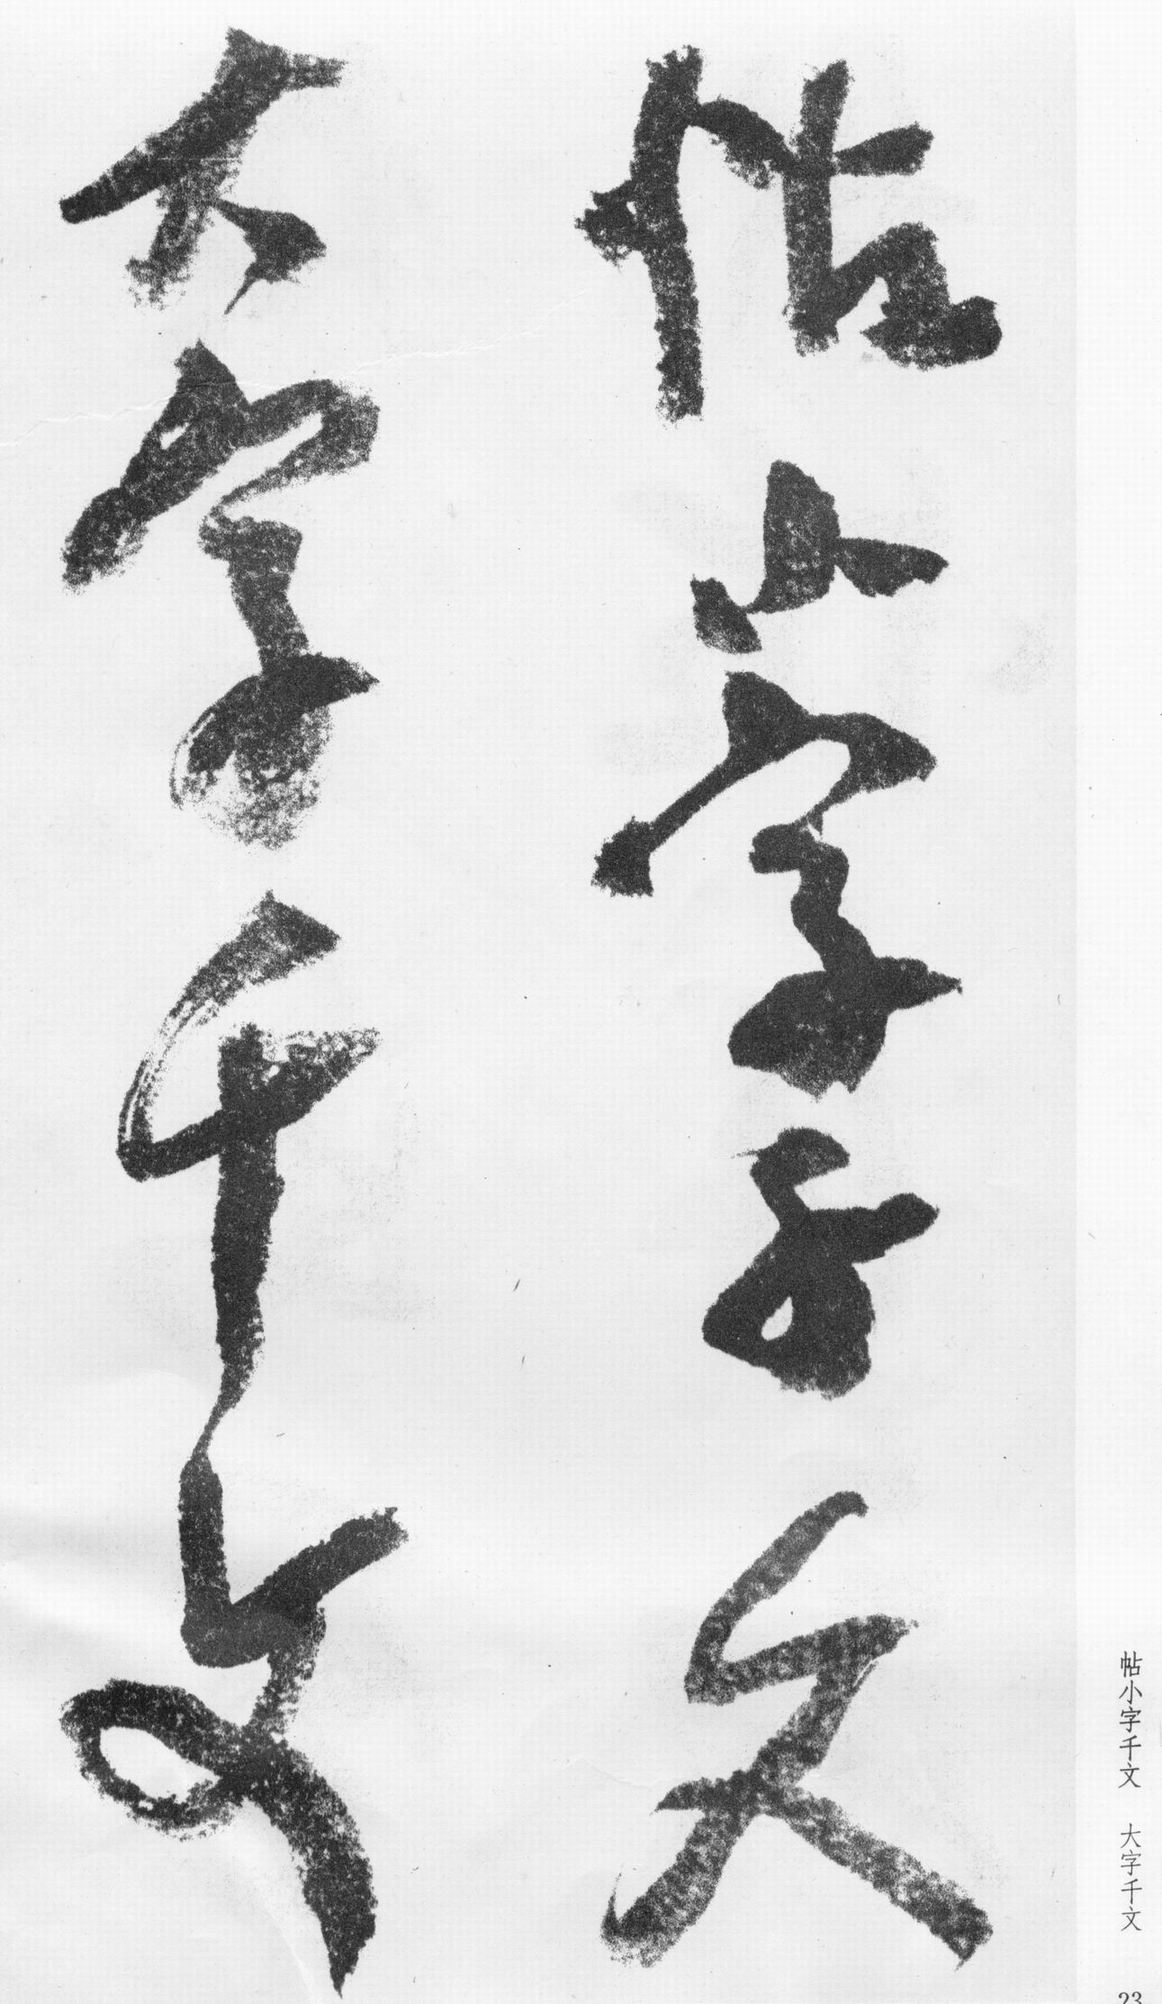 帖小字千文
大字千文
帖小字千文　大字千文
23